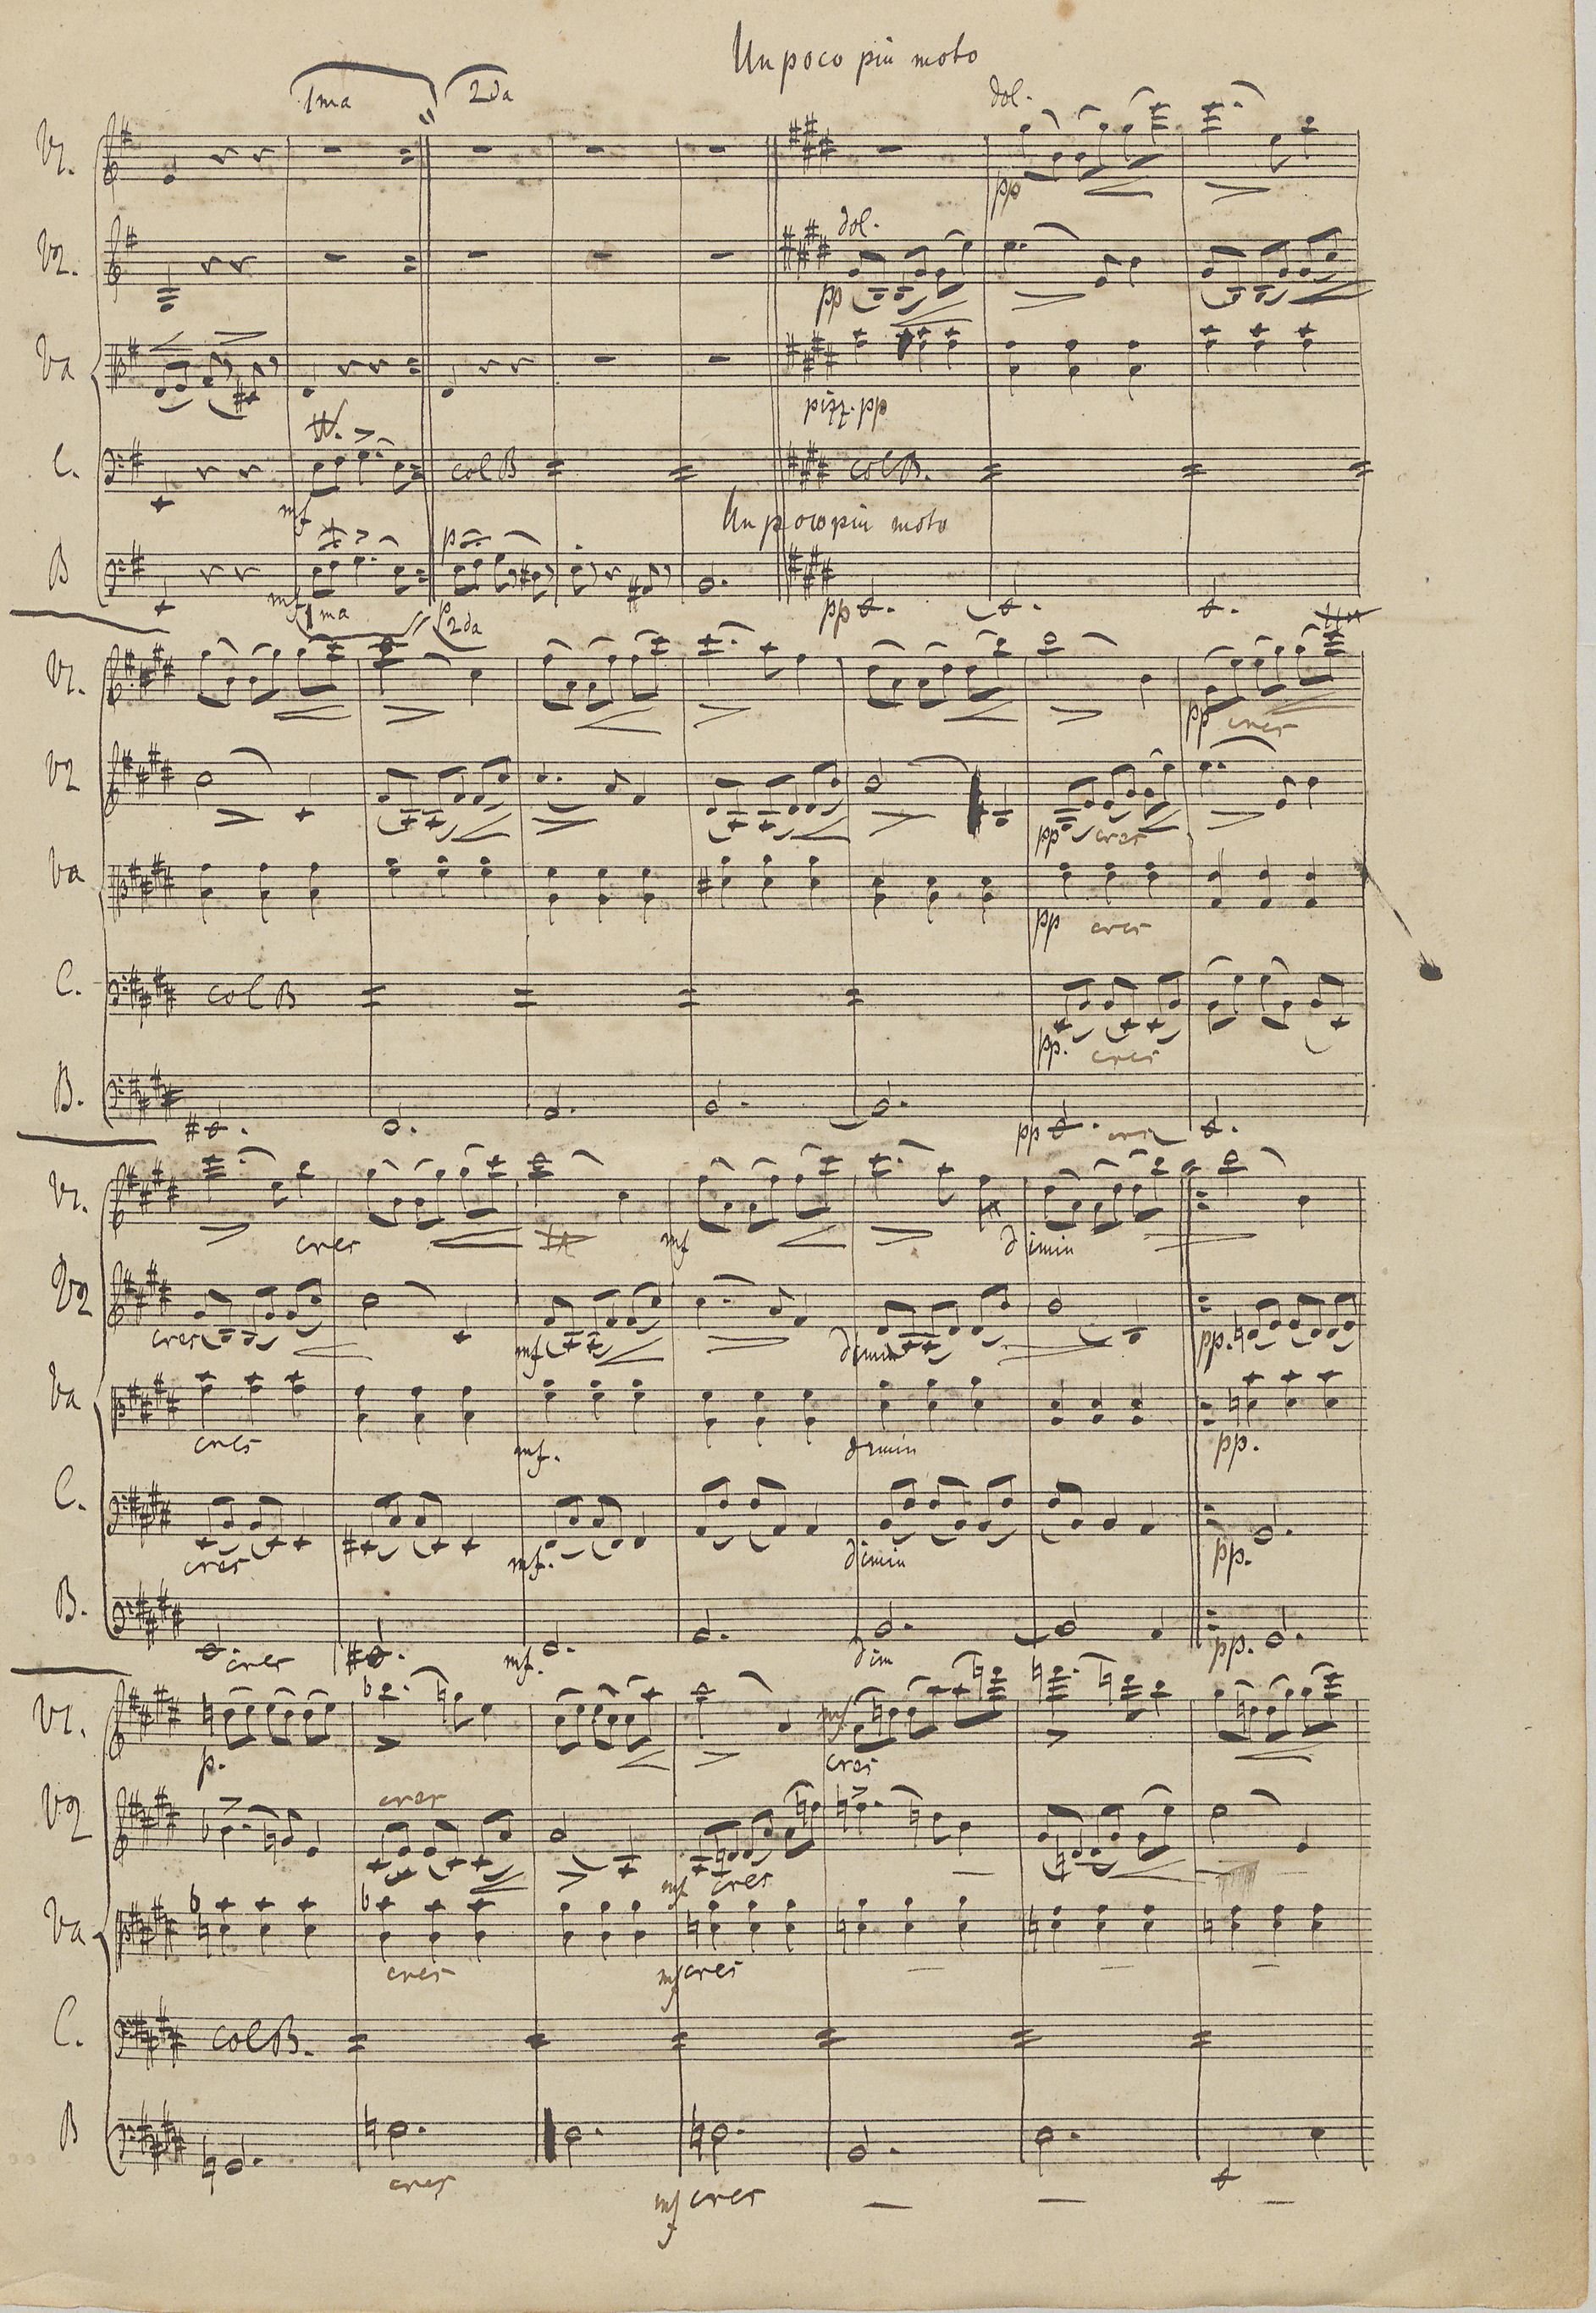 Un poco più moto
1ma 2da dol.
V1.
pp
V2. dol.
pp
Va
pizz. pp
C. col B col B.
mf
Un poco più moto
B p
mf pp
1ma p 2da
V1.
pp cres
V2
pp cres
Va
pp cres
C. col B
pp. cres
B.
pp cres
V1.
cres mf dimin
V2
cres mf dimin pp.
Va
cres mf. dimin pp.
C.
cres mf. dimin pp.
B.
cres mf. dim pp.
V1. mf
p. cres
V2 cres
mf cres
Va
cres mf cres
C. col B.
B
cres mf cres